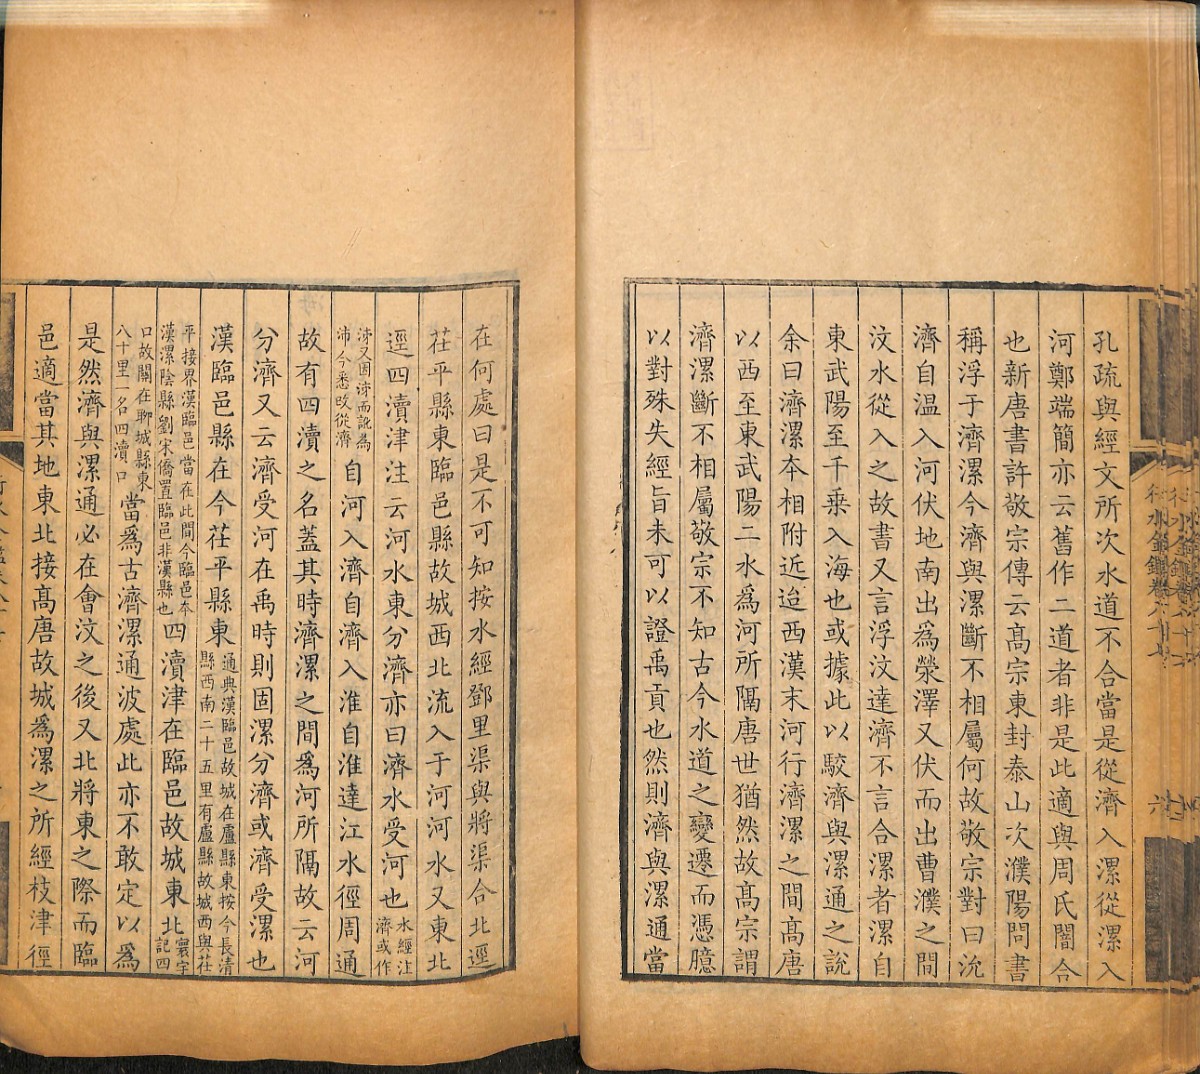 孔疏與經文所次水道不合當是從濟入漯從漯入
河鄭端簡亦云舊作二道者非是此適與周氏闇合
也新唐書許敬宗傳云高宗東封泰山次濮陽問書
稱浮于濟漯今濟與漯斷不相屬何故敬宗對曰沇
濟自温入河伏地南出爲滎澤又伏而出曹濮之間
汶水從入之故書又言浮汶達濟不言合漯者漯自
東武陽至千乗入海也或據此以駁濟與漯通之說
余曰濟漯夲相附近迨西漢末河行濟漯之間高唐
以西至東武陽二水爲河所隔唐世猶然故高宗謂
濟漯斷不相屬敬宗不知古今水道之變遷而憑臆
以對殊失經旨未可以證禹貢也然則濟與漯通當
在何處曰是不可知按水經鄧里渠與將渠合北逕
茌平縣東臨邑縣故城西北流入于河河水又東北
逕四瀆津注云河水東分濟亦曰濟水受河也水經注濟或作
泲又因泲而訛爲沛今悉改從濟自河入濟自濟入淮自淮達江水徑周通
故有四瀆之名蓋其時濟漯之間爲河所隔故云河
分濟又云濟受河在禹時則固漯分濟或濟受漯也
漢臨邑縣在今茌平縣東通典漢臨邑故城在盧縣東按今長清縣西南二十五里有盧縣故城西與茌
平接界漢臨邑當在此間今臨邑夲漢漯陰縣劉宋僑置臨邑非漢縣也四瀆津在臨邑故城東北寰宇記四
口故關在聊城縣東八十里一名四瀆口當爲古濟漯通波處此亦不敢定以爲
是然濟與漯通必在會汶之後又北將東之際而臨
邑適當其地東北接高唐故城爲漯之所經枝津徑